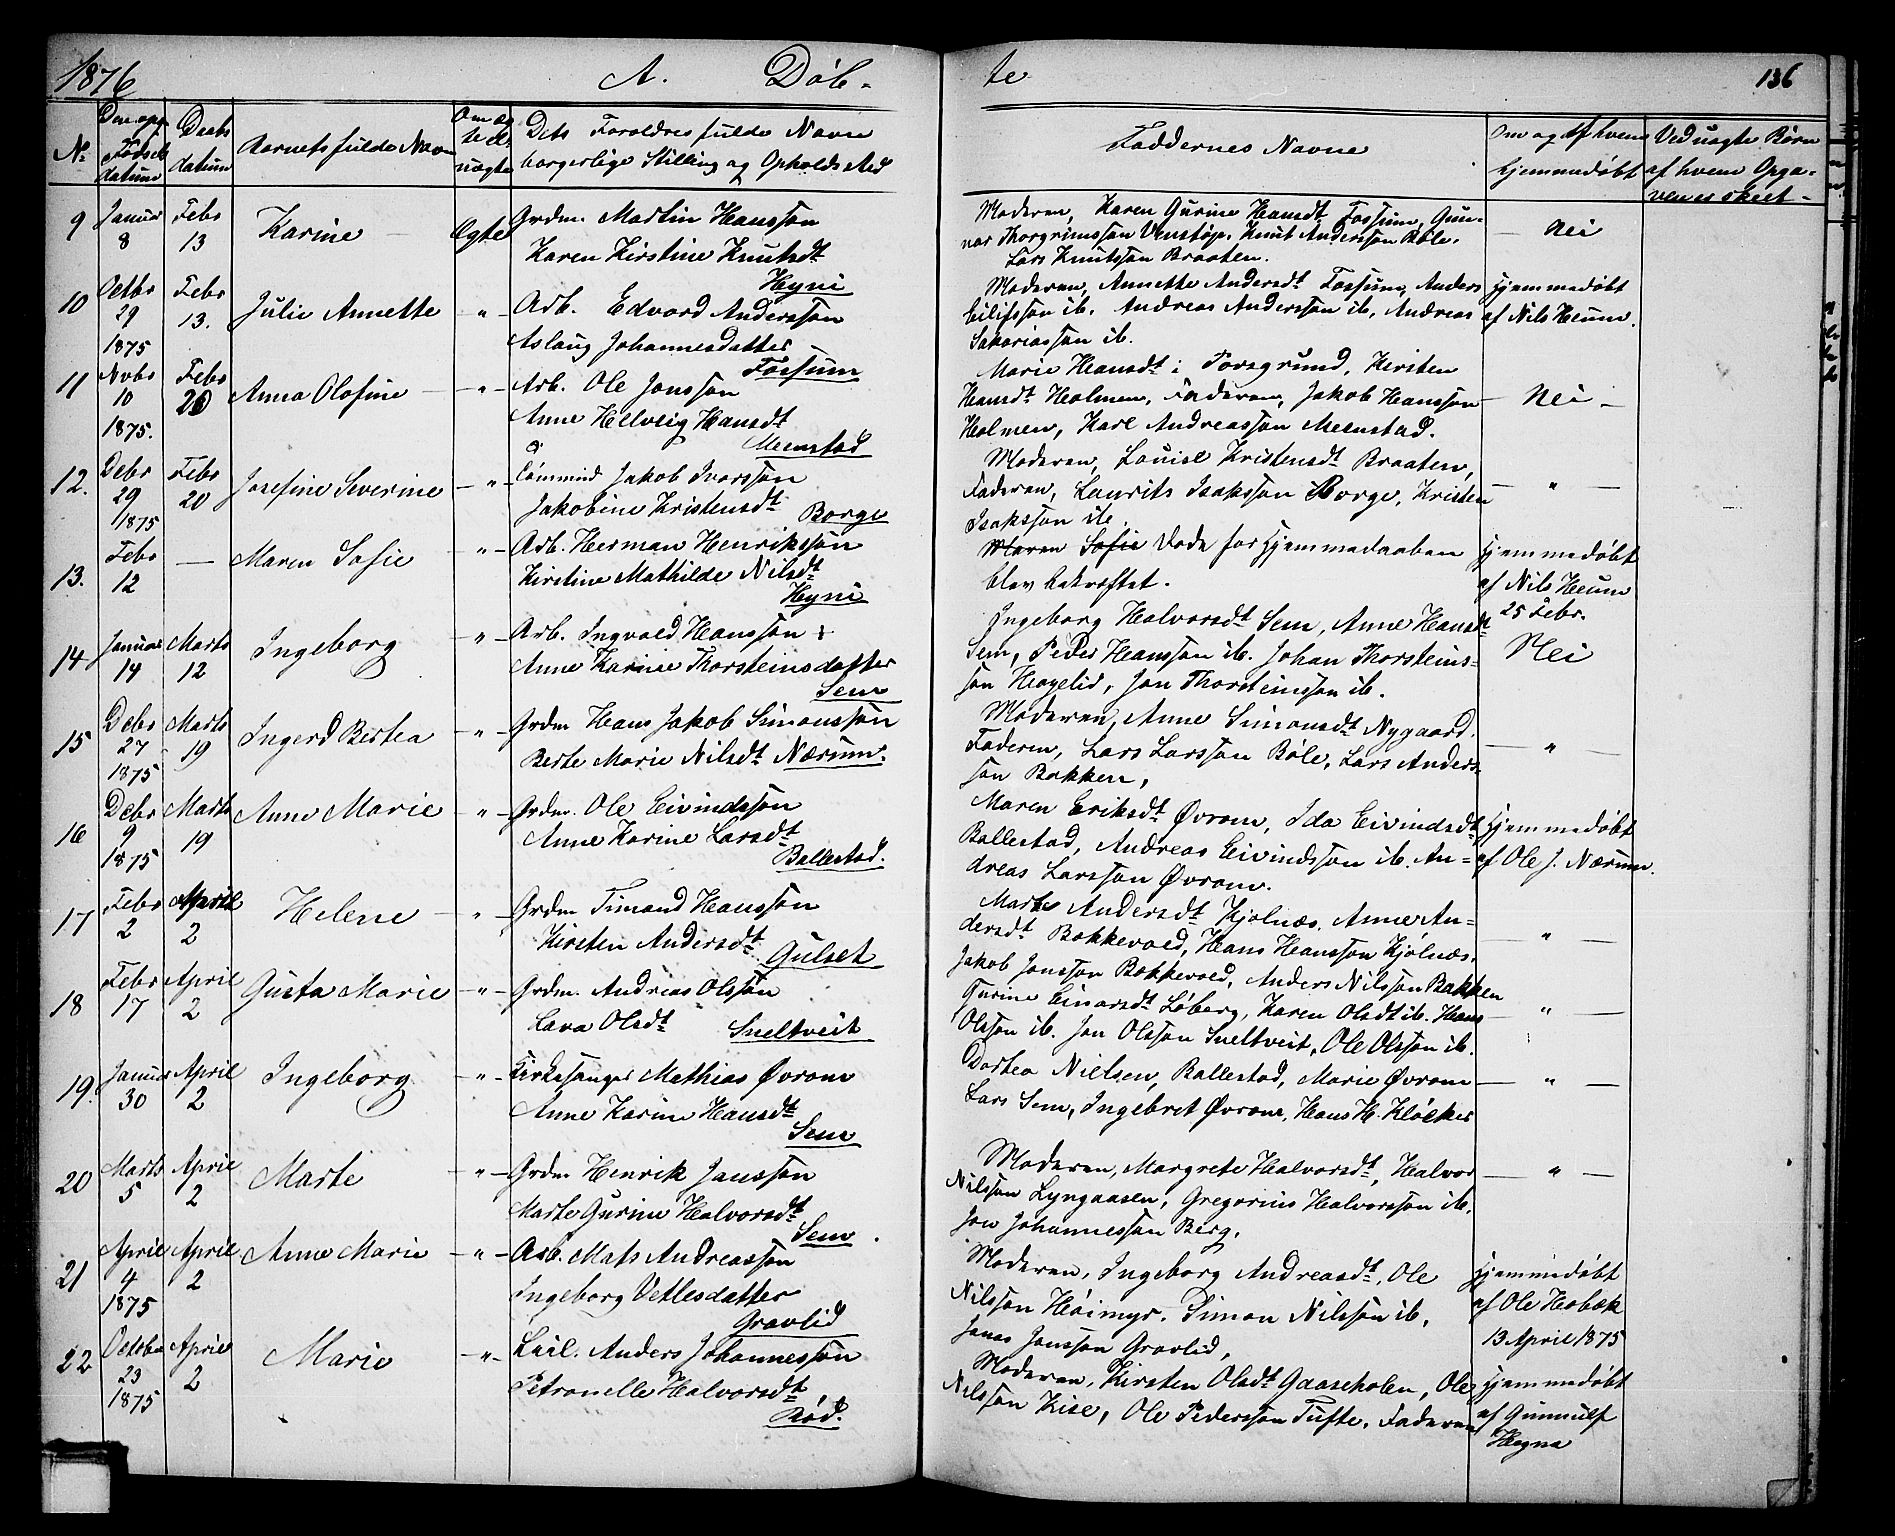 1876 A. Døb-
te 136
No Den opg. Fødsels datum Daabs datum Barnets fulde Navn Om ægte el. uægte Dets Forældres fulde Navn borgerlige Stilling og Opholds Sted
Faddernes Navne Om og af hvem Hjemmedøbt Ved uægte Børn af hvem Opga- ven er skeet -
9 Januar 8 Febr 13 Karine Ægte Grdm. Martin Hansson
Karen Kirstine Knutsdt
Hyni
Moderen, Karen Gurine Hansdt Fossum, Gun-
nar Thorgrimsson Venstøp. Knut Andersson Bøle.
Lars Knutsson Braaten.
Nei
10 Octbr 29 1875 Febr 13. Julie Annette -"- Arb. Edvard Andersson
Aslaug Johannesdatter
Fossum
Moderen, Annette Andersdt Fossum, Anders
Eilifsson ib. Andreas Andersson ib, Andreas
Sakariasson ib.
Hjemmedøbt
af Nils Heum.
11 Novbr 10 1875. Febr 20 Anna Olafine -"- Arb. Ole Jonsson
Anne Hellvig Hansdt
Meenstad
Marie Hansdt i Porsgrund, Kirsten
Hansdt Holmen, Faderen, Jakob Hansson
Holmen, Karl Andreasson Meenstad.
Nei
12. Debr 29 1875 Febr 20 Josefine Severine -"- Tømmmd Jakob Ivarsson
Jakobine Kristensdt
Borge
Moderen, Louise Kristensdt Braaten,
Faderen, Laurits Isaksson Borge, Kristen
Isaksson ib.
"
13. Febr 12 — Maren Sofie -"- Arb. Herman Henriksson
Kirstine Mathilde Nilsdt
Hyni
Maren Sofie døde før Hjemmedaaben
blev bekræftet.
Hjemmedøbt
af Nils Heum
25 Febr.
14 Januar 14 Marts 12 Ingeborg -"- Arb. Ingvald Hansson
Anne Karine Thorsteinsdatter
Sem
Ingeborg Halvorsdt Sem, Anne Hansdt
Sem, Peder Hansson ib. Johan Thorsteins-
son Hagelid, Jon Thorsteinsson ib.
Nei
15 Debr 27 1875 Marts 19 Ingerd Bertea -"- Grdm Hans Jakob Simonsson
Berte Marie Nilsdt Nærum.
Moderen, Anne Simonsdt Nygaard.
Faderen, Lars Larsson Bøle, Lars Anders-
son Bakken,
"
16 Debr 9 1875 Marts 19 Anne Marie -"- Grdm. Ole Eivindsson
Anne Karine Larsdt
Ballestad.
Maren Eriksdt Øvrom, Ida Eivindsdt
Ballestad, Andreas Eivindsson ib. An-
dreas Larsson Øvrom.
Hjemmedøbt
af Ole J. Nærum.
17 Febr 2 April 2 Helene -"- Grdm Timand Hansson
Kirsten Andersdt
Gulset
Marte Andersdt Kjølnæs. Anne An-
dersdt Bakkevold, Hans Hansson Kjølnæs.
Jakob Jonsson Bakkevold, Anders Nilsson Bakken
"
18 Febr 17 April 2 Gusta Marie -"- Grdm. Andreas Olsson
Lava Olsdt Sneltveit
Gurine Einarsdt Løberg, Karen Olsdt ib. Hans
Olsson ib. Jon Olsson Sneltveit, Ole Olsson ib.
"
19. Januar 30 April 2 Ingeborg -"- Kirkesanger Mathias Øvrom
Anne Karine Hansdt
Sem
Dortea Nielsen, Ballestad, Marie Øvrom
Lars Sem, Ingebret Øvrom, Hans H. Kløcker
"
20 Marts 5 April 2 Marte -"- Grdm Henrik Jansson
Marte Gurine Halvorsdt
Sem.
Moderen, Margrete Halvorsdt, Halvor
Nilsson Lyngaasen, Gregorius Halvorsson ib.
Jon Johannesson Berg.
"
21 April 4 1875 April 2 Anne Marie -"- Arb. Mats Andreasson
Ingeborg Vetlesdatter
Gravlid
Moderen, Ingeborg Andreasdt, Ole
Nilsson Høimyr. Simon Nilsson ib,
Jonas Jonsson Gravlid,
Hjemmedøbt
af Ole Hobæk
13 April 1875
22 October 23 1875 April 2 Marie -"- Leil. Anders Johannesson
Petronelle Halvorsdt
Rød.
Moderen, Kirsten Olsdt Gaaseholen, Ole
Nilsson Kise, Ole Pedersson Tufte, Faderen
Hjemmedøbt
af Gunnulf
Hegna